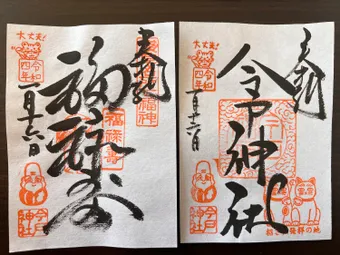 奉拝
福禄寿
福禄寿
大丈夫!
令和
四年
一月十六日
今戸
神社
奉拝
今戸神社
大丈夫!
令和
四年
一月十六日
今戸
神社
発祥の地